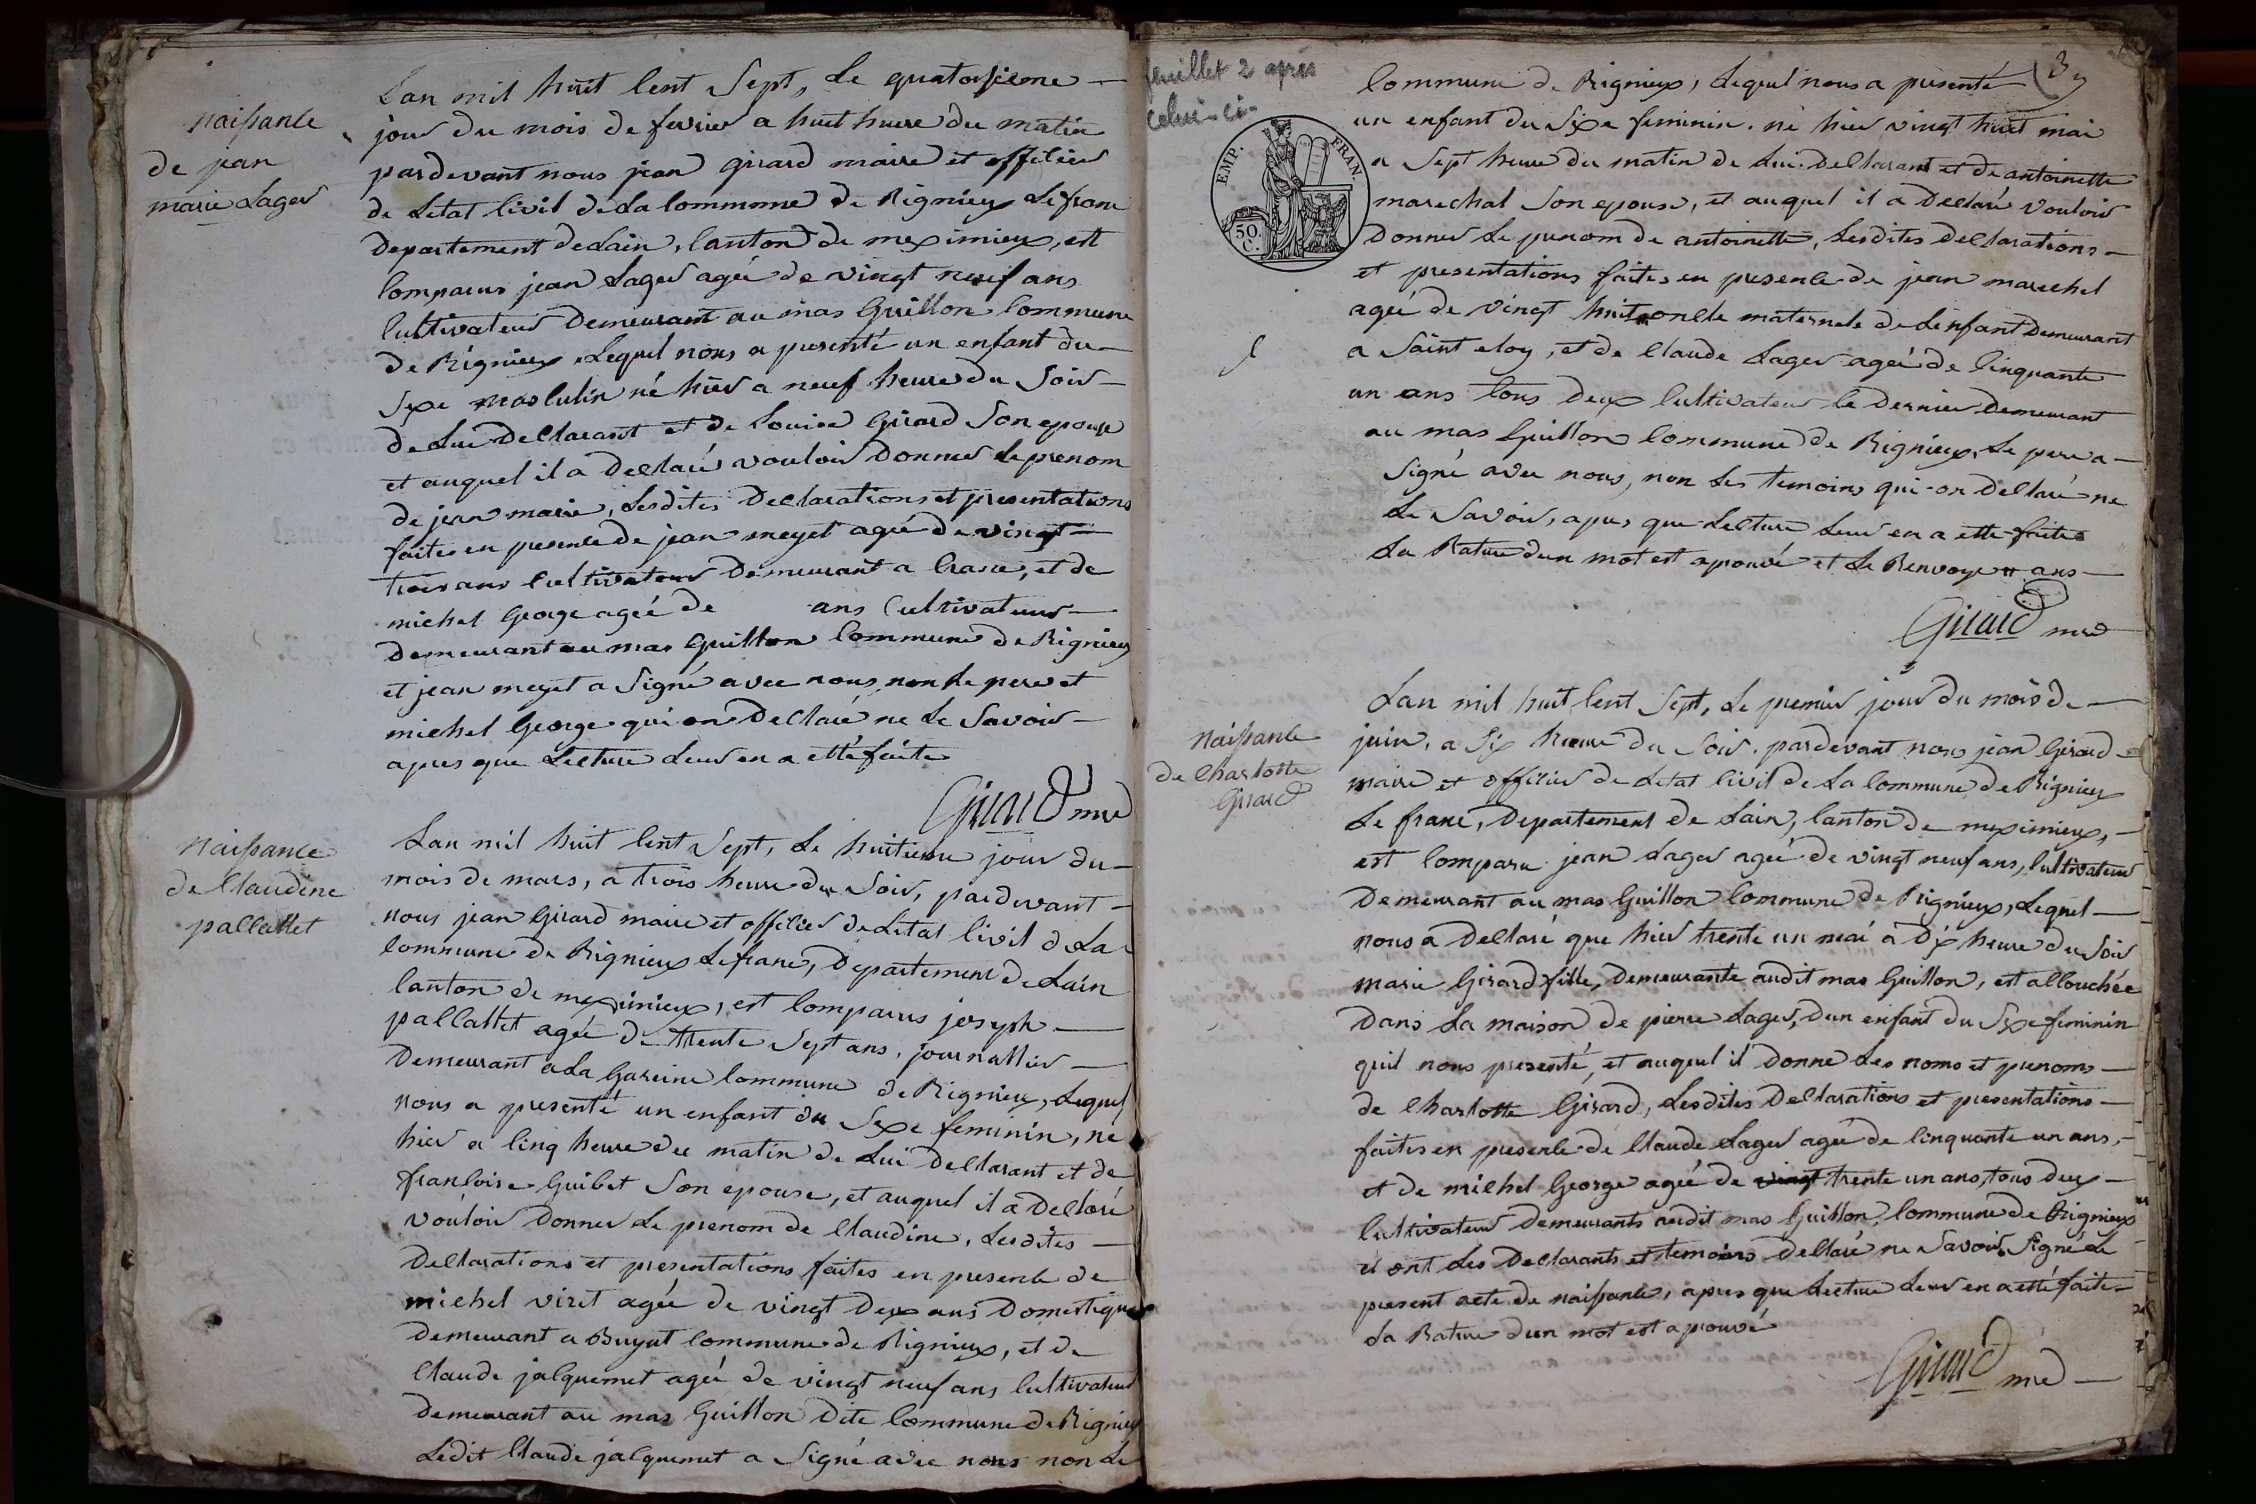 naissance
de jean
marie Lager
Lan mil huit cent Sept, Le quatorsieme
jour du mois de fevrier a huit heure du matin
pardevant nous jean girard maire et officier
de Letat civil de La commune de Rignieux Lefranc
Departement de Lain, canton de meximieux, est
comparus jean Lager ageé de vingt neuf ans
cultivateur Demeurant au mas Guillon commune
de Rignieux Lequel nous a presenté un enfant du
Sexe masculin né hier a neuf heure du Soir
de Lui Declarant et de Louise Girard Son epouse
et auquel il a Declaré vouloir Donner Le prenom
de jean marie, Lesdites Declarations et presentations
faites en presence de jean meyet ageé de vingt
trois ans cultivateur Demeurant a Crans, et de
michel George ageé de ans Cultivateur
Demeurant au mas Guillon commune de Rignieux
et jean meyet a Signé avec nous non Le pere et
michel George qui on Declaré ne Le Savoir
apres que Lecture Leur en a etté faite
Girard mre
naissance
de Claudine
pallattet
Lan mil huit cent Sept, Le huitieme jour du
mois de mars, a trois heure du Soir, pardevant
nous jean Girard maire et officier de Letat civil de La
commune de Rignieux Lefranc, Departement de Lain
canton de meximieux, est comparus joseph
pallattet ageé de trente Sept ans, journallier
Demeurant a La Gareine commune de Rignieux, Lequel
nous a presenté un enfant du Sexe feminin, né
hier a cinq heure du matin de Lui Declarant et de
francoise Guibet Son epouse, et auquel il a Declaré
vouloir Donner Le prenom de Claudine, Lesdites
Declarations et presentations faites en presence de
michel viret ageé de vingt Deux ans Domestique
Demeurant a Buyat commune de Rignieux, et de
Claude jacquemet ageé de vingt neuf ans cultivateur
Demeurant au mas Guillon Dite commune de Rignieux
Ledit Claude jacquemet a Signé avec nous non Le
feuillet 2 apres
celui-ci
3
EMP. FRAN.
50.
C.
commune de Rignieux, Lequel nous a presenté
un enfant du Sixe feminin. né hier vingt huit mai
a Sept heure du matin de Lui Declarant et de antoinette
marechal Son epouse, et auquel il a Declaré vouloir
Donner Le prenom de antoinette, Lesdites Declarations
et presentations faites en presence de jean marechel
ageé de vingt huit oncle maternele de Lenfant Demeurant
a Saint eloy, et de Claude Lager ageé de cinquante
un ans tous Deux cultivateur le Dernier Demeurant
au mas Guillon commune de Rignieux, Le pere a
Signé avec nous, non Les temoins qui on Declaré ne
Le Savoir, apres que Lecture Leur en a etté faite
La Rature dun mot est aprouvé et Le Renvoye # ans
Girard mre
Naissance
de Charlotte
Girard
Lan mil huit cent Sept, Le premier jour du mois de
juin, a Six heure du Soir. pardevant nous jean Girard
maire et officier de Letat civil de La commune de Rignieux
Le franc, Departement de Lain, canton de meximieux,
est comparu jean Lager ageé de vingt neuf ans, cultivateur
Demeurant au mas Guillon commune de Rignieux, Lequel
nous a Declaré que hier trente un mai a Dix heure du Soir
marie Girard fille, Demeurante audit mas Guillon, est accouchée
Dans La maison de pierre Lager, Dun enfant du Sexe feminin
quil nous presenté, et auquel il Donne Les noms et prenoms
de Charlotte Girard, Lesdites Declarations et presentations
faites en presence de Claude Lager ageé de cinquante un ans,
et de michel George ageé de vingt trente un ans, tous Deux
cultivateur Demeurants audit mas Guillon, commune de Rignieux
et ont Les Declarants et temoins Declaré ne Savoir Signé Le
present acte de naissance, apres que Lecture Leur en a etté faite
La Rature dun mot est aprouvé
Girard mre